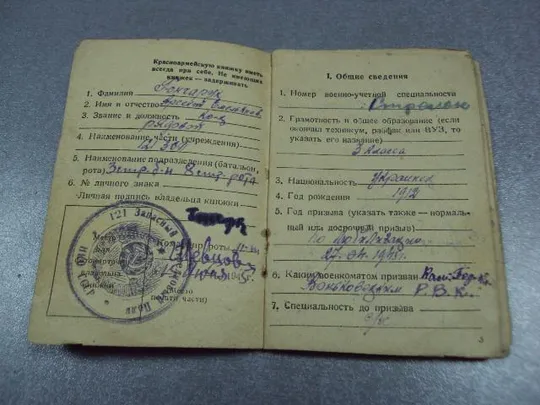 Красноармейскую книжку иметь
всегда при себе. Не имеющих
книжек — задерживать
1. Фамилия Гончарук
2. Имя и отчество
3. Звание и должность кр-ц
рядовой
4. Наименование части (учреждения)
121 ЗСП
5. Наименование подразделения (батальон,
рота) 3 стр. б-н 8 стр. рота
6. № личного знака
Личная подпись владельца книжки
121 Запасный
Полк
Место
для
Командир роты
1945
(место
печати части)
I. Общие сведения
1. Номер военно-учетной специальности
Стрелок
2. Грамотность и общее образование (если
окончил техникум, рабфак или ВУЗ, то
указать его название)
3 класса
3. Национальность Украинец
4. Год рождения 1912
5. Год призыва (указать также — нормаль-
ный или досрочный призыв)
По мобилизации
6. Каким военкоматом призван Кам. Под.
Р.В.К.
7. Специальность до призыва
3